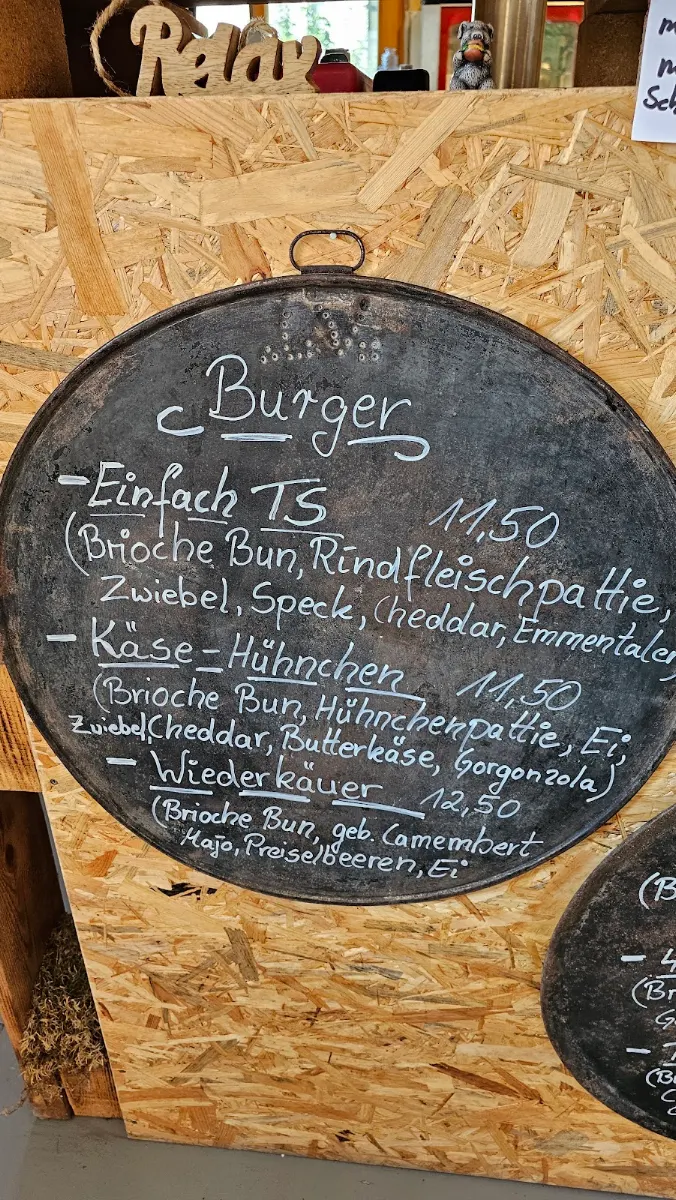 Relax
Burger
- Einfach TS 11,50
(Brioche Bun, Rindfleischpattie,
Zwiebel, Speck, Cheddar, Emmentaler
- Käse-Hühnchen 11,50
(Brioche Bun, Hühnchenpattie, Ei,
Zwiebel, Cheddar, Butterkäse, Gorgonzola)
- Wiederkäuer 12,50
(Brioche Bun, geb. Camembert
Majo, Preiselbeeren, Ei